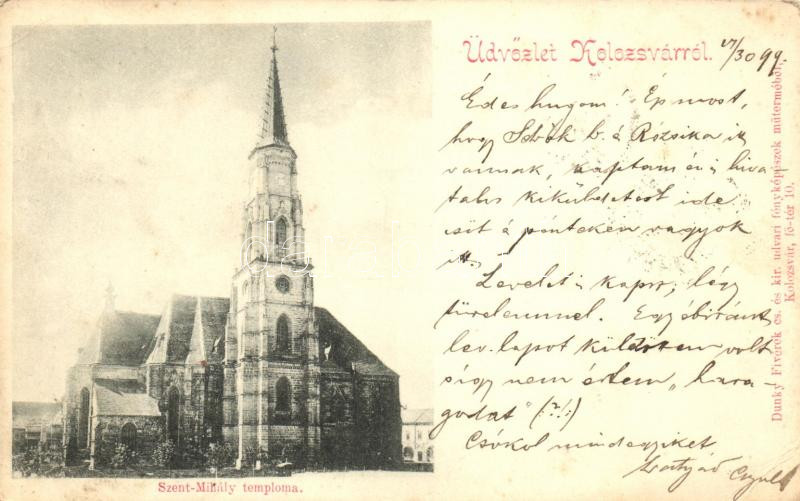 Üdvözlet Kolozsvárról. VI/30 99.
Édes hugom! Épp most,
hogy b. á Rózsika itt
vannak, kaptam én is hiva
talos kiküldetést ide
és itt á pénteken vagyok
itt.
Levelet is kapsz, légy
türelemmel. Egyébiránt
lev. lapot küldtem volt
s igy nem értem „hara-
godat" (?!:)
Csókol mindegyiket
bátyád
Szent-Mihály temploma.
Dunky Fivérek cs. és kir. udvari fényképészek műterméből,
Kolozsvár, fő-tér 10.